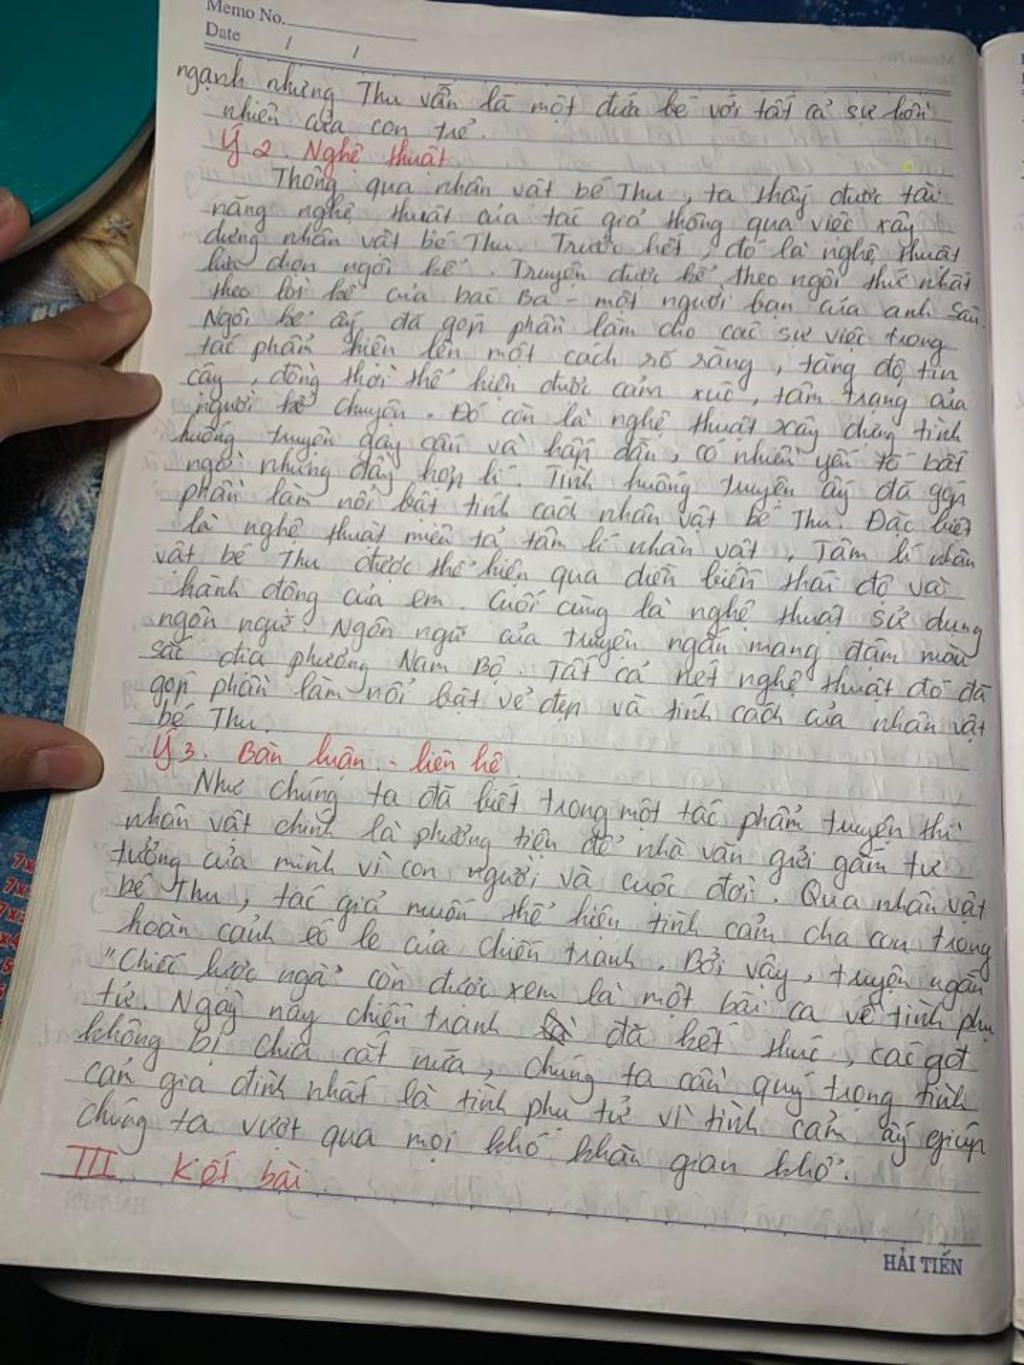 Memo No.
Date / /
ngạnh nhưng Thu vẫn là một đứa bé với tất cả sự hồn
nhiên của con trẻ.
Ý 2. Nghệ thuật
Thông qua nhân vật bé Thu, ta thấy được tài
năng nghệ thuật của tác giả thông qua việc xây
dựng nhân vật bé Thu. Trước hết, đó là nghệ thuật
lựa chọn ngôi kể. Truyện được kể theo ngôi thứ nhất
theo lời kể của bác Ba - một người bạn của anh Sáu.
Ngôi kể ấy đã góp phần làm cho các sự việc trong
tác phẩm hiện lên một cách rõ ràng, tăng độ tin
cậy, đồng thời thể hiện được cảm xúc, tâm trạng của
người kể chuyện. Đó còn là nghệ thuật xây dựng tình
huống truyện gay cấn và hấp dẫn, có nhiều yếu tố bất
ngờ nhưng đầy hợp lí. Tình huống truyện ấy đã góp
phần làm nổi bật tính cách nhân vật bé Thu. Đặc biệt
là nghệ thuật miêu tả tâm lí nhân vật, Tâm lí nhân
vật bé Thu được thể hiện qua diễn biến thái độ và
hành động của em. Cuối cùng là nghệ thuật sử dụng
ngôn ngữ. Ngôn ngữ của truyện ngắn mang đậm màu
sắc địa phương Nam Bộ. Tất cả nét nghệ thuật đó đã
góp phần làm nổi bật vẻ đẹp và tính cách của nhân vật
bé Thu.
Ý 3. Bàn luận - liên hệ.
Như chúng ta đã biết trong một tác phẩm truyện thì
nhân vật chính là phương tiện để nhà văn gửi gắm tư
tưởng của mình vì con người và cuộc đời. Qua nhân vật
bé Thu, tác giả muốn thể hiện tình cảm cha con trong
hoàn cảnh éo le của chiến tranh. Bởi vậy, truyện ngắn
"Chiếc lược ngà" còn được xem là một bài ca về tình phụ
tử. Ngày nay chiến tranh đã kết thúc, các
không bị chia cắt nữa, chúng ta cần quý trọng tình
cảm gia đình nhất là tình phụ tử vì tình cảm ấy giúp
chúng ta vượt qua mọi khó khăn gian khổ.
III. Kết bài.
HẢI TIẾN